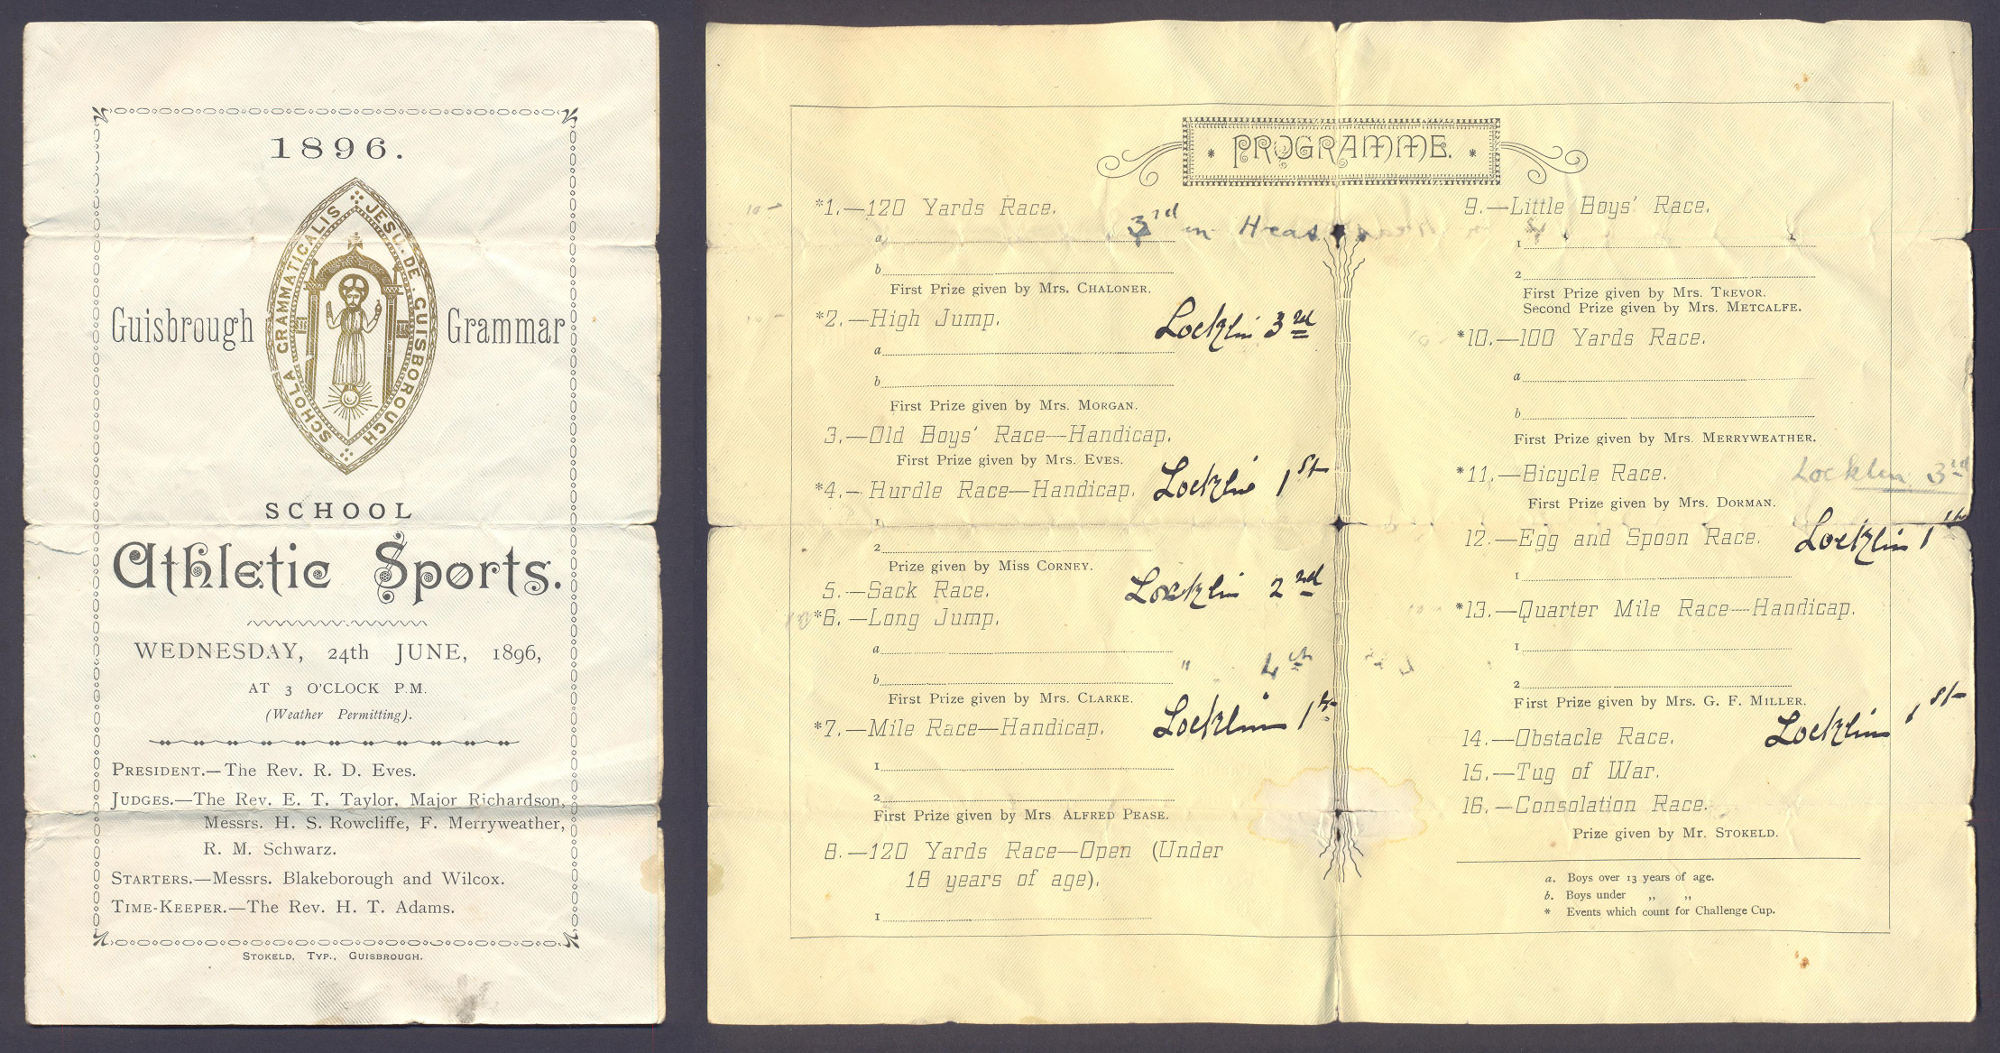 1896.
SCHOLA GRAMMATICALIS JESU. DE. GUISBOROUGH
Guisbrough Grammar
SCHOOL
Athletic Sports.
WEDNESDAY, 24th JUNE, 1896,
AT 3 O'CLOCK P.M.
(Weather Permitting).
PRESIDENT.—The Rev. R. D. Eves.
JUDGES.—The Rev. E. T. Taylor, Major Richardson,
Messrs. H. S. Rowcliffe, F. Merryweather,
R. M. Schwarz.
STARTERS.—Messrs. Blakeborough and Wilcox.
TIME-KEEPER.—The Rev. H. T. Adams.
STOKELD, TYP., GUISBROUGH.
* PROGRAMME. *
*1.—120 Yards Race.
a 3rd in Heat
b
First Prize given by Mrs. CHALONER.
*2.—High Jump. Locklin 3rd
a
b
First Prize given by Mrs. MORGAN.
3.—Old Boys' Race—Handicap.
First Prize given by Mrs. EVES.
*4.—Hurdle Race—Handicap. Locklin 1st
1
2
Prize given by Miss CORNEY.
5.—Sack Race. Locklin 2nd
*6.—Long Jump.
a
b " 4th
First Prize given by Mrs. CLARKE.
*7.—Mile Race—Handicap. Locklin 1st
1
2
First Prize given by Mrs ALFRED PEASE.
8.—120 Yards Race—Open (Under
18 years of age).
1
9.—Little Boys' Race.
1
2
First Prize given by Mrs. TREVOR.
Second Prize given by Mrs. METCALFE.
*10.—100 Yards Race.
a
b
First Prize given by Mrs. MERRYWEATHER.
*11.—Bicycle Race. Locklin 3rd
First Prize given by Mrs. DORMAN.
12.—Egg and Spoon Race. Locklin 1st
1
*13.—Quarter Mile Race—Handicap.
1
2
First Prize given by Mrs. G. F. MILLER.
14.—Obstacle Race. Locklin 1st
15.—Tug of War.
16.—Consolation Race.
Prize given by Mr. STOKELD.
a. Boys over 13 years of age.
b. Boys under „ „
* Events which count for Challenge Cup.